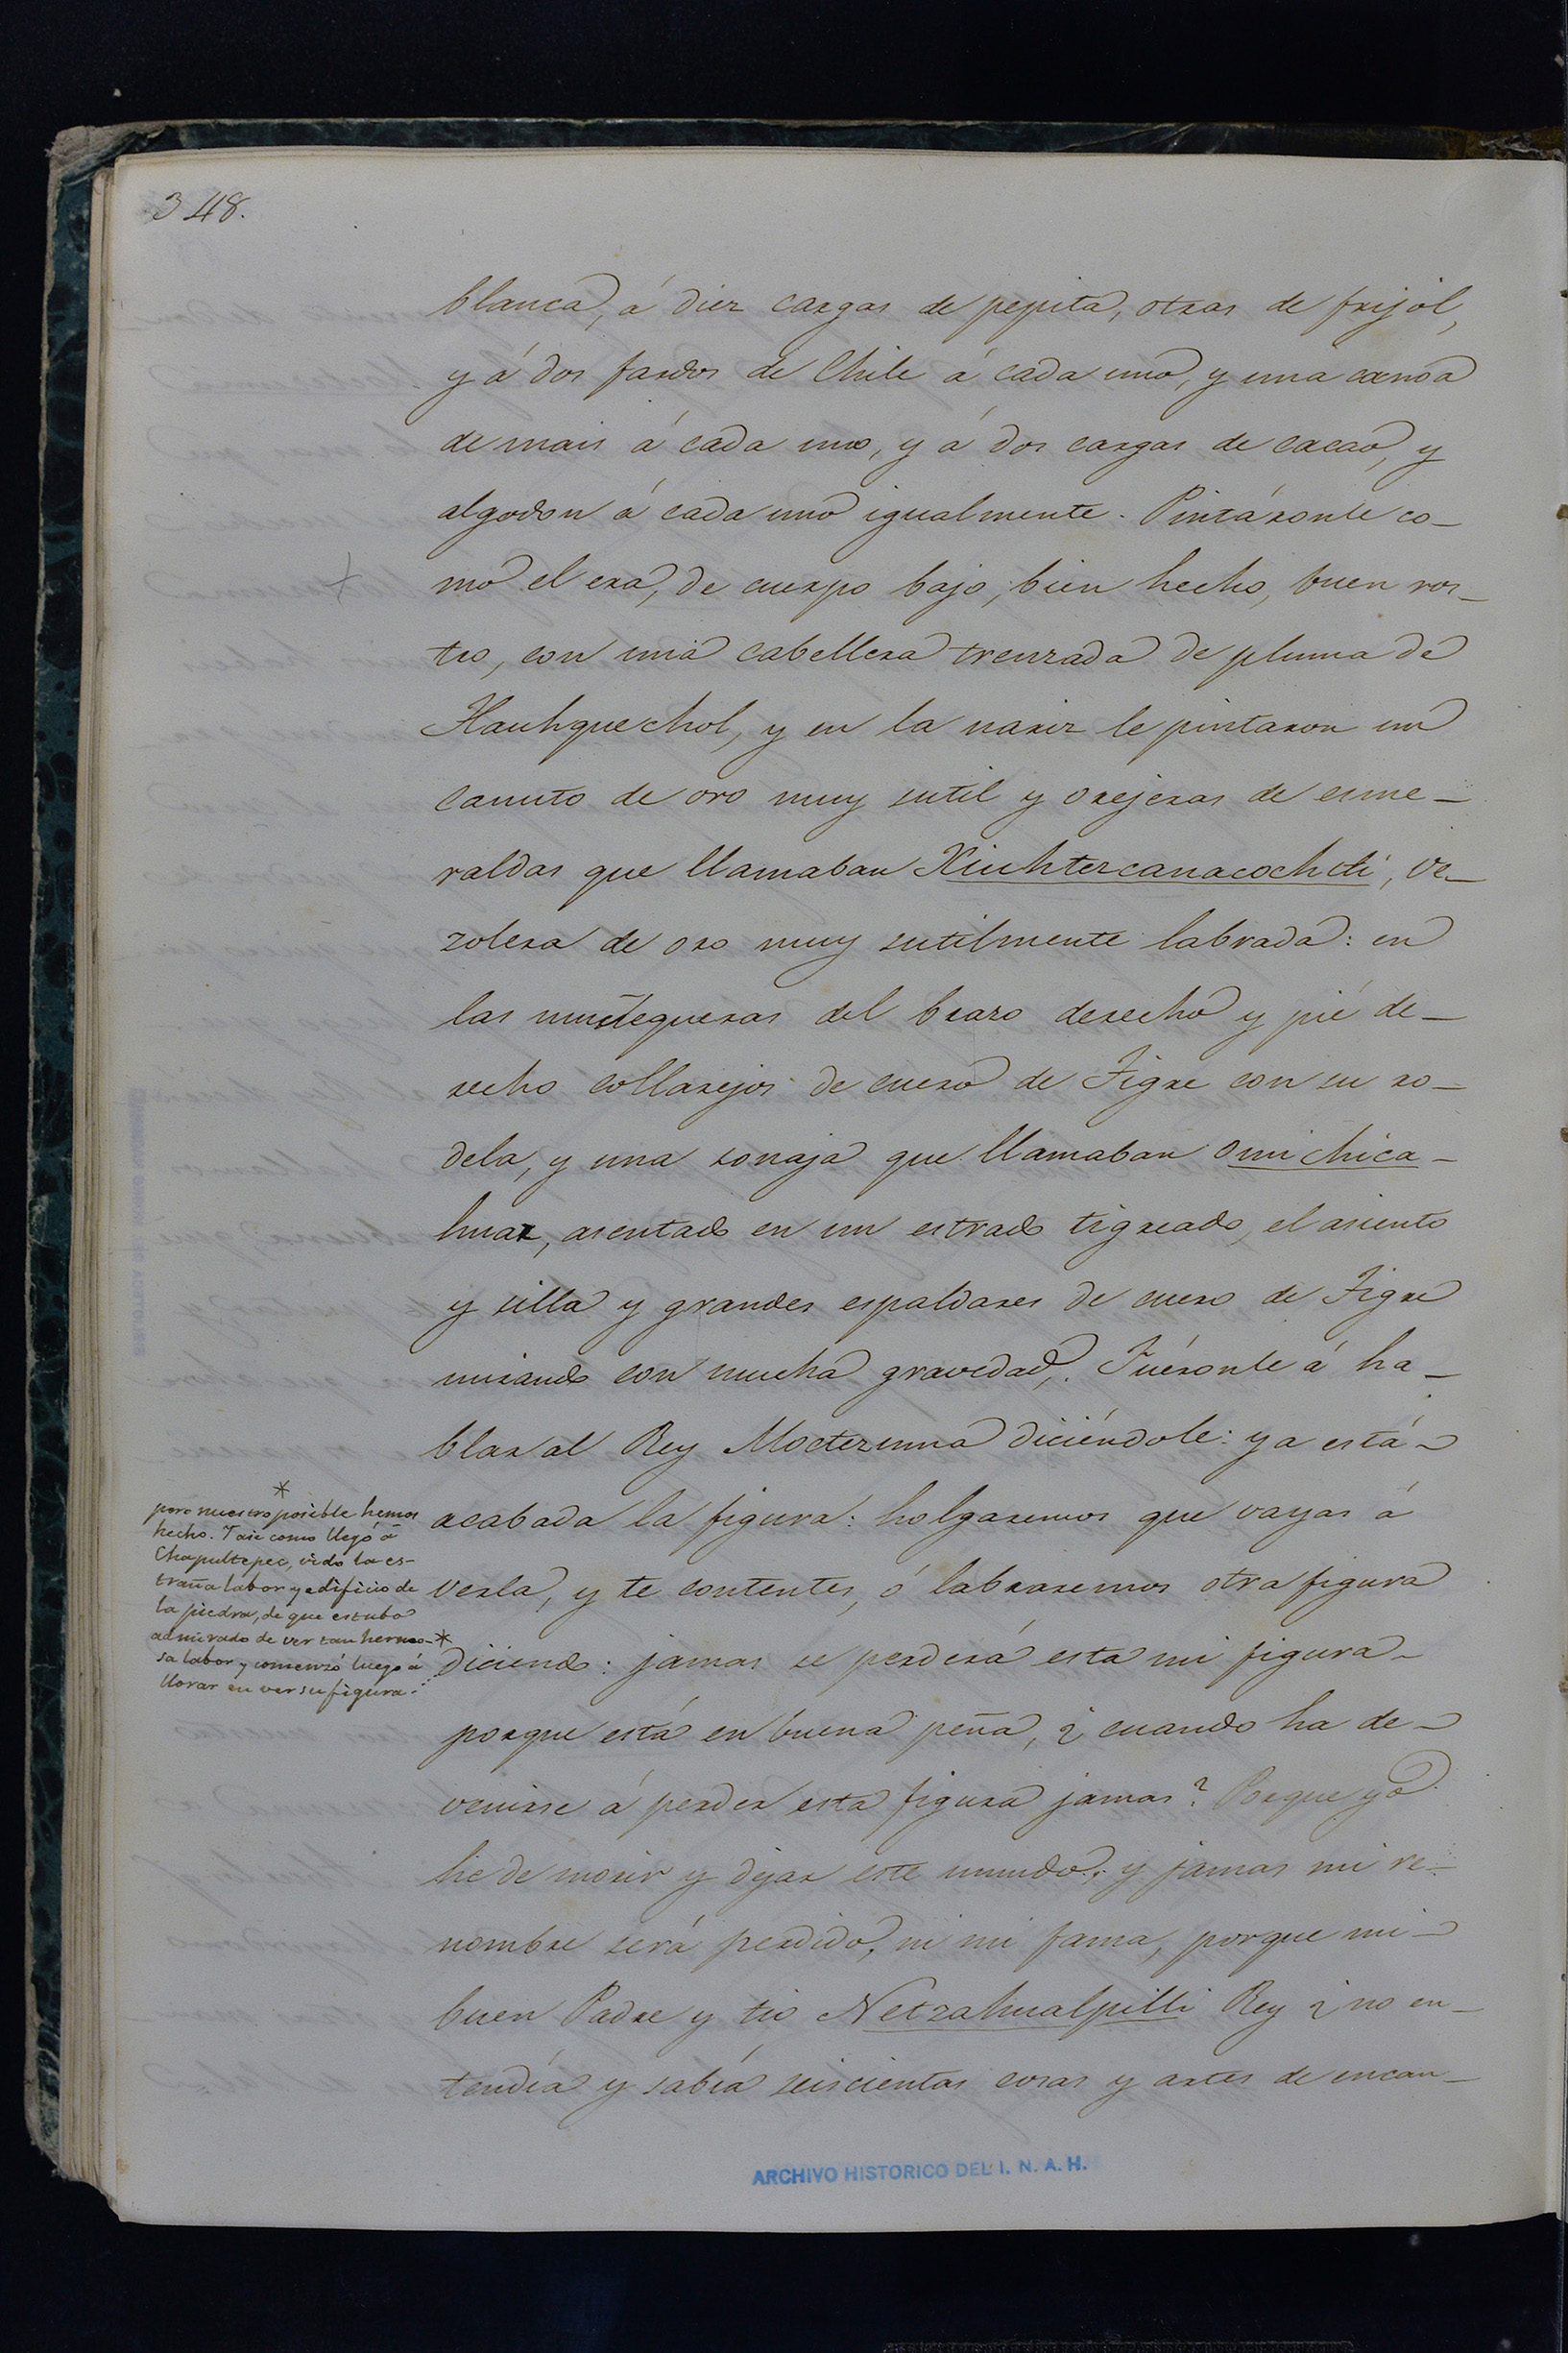 348.
blanca, á diez cargas de pepita, otras de frijol,
y á dos fardos de Chile á cada uno, y una canoa
de mais á cada uno, y á dos cargas de cacao, y
algodon á cada uno igualmente. Pintáronle co-
mo el era, de cuerpo bajo, bien hecho, buen ros-
tro, con una cabellera trenzada de pluma de
Tlauhquechol, y en la nariz le pintaron un
canuto de oro muy sutil y orejeras de esme-
raldas que llamaban Xiuhtezcanacochtli, ve-
zolera de oro muy sutilmente labrada: en
las muñequeras del brazo derecho y pié de-
recho collarejos de cuero de Tigre con su ro-
dela, y una sonaja que llamaban omichica-
huaz, asentado en un estrado tigreado, el asiento
y silla y grandes espaldares de cuero de Tigre
mirando con mucha gravedad. Fuéronle á ha-
blar al Rey Moctezuma diciéndole: ya está
acabada la figura: holgaremos que vayas á
verla, y te contentes, ó labraremos otra figura
*
diciendo: jamas se perderá esta mi figura
porque está en buena peña, ¿ cuando ha de
venirse á perder esta figura jamas? Porque yo
he de morir y dejar este mundo; y jamas mi re-
nombre será perdido, ni mi fama, porque mi
buen Padre y tio Netzahualpilli Rey ¿ no en-
tendía y sabía seiscientas cosas y artes de encan-
*
pero nuestro posible hemos
hecho. Tasi como llegó á
Chapultepec, vido la es-
traña labor y edificio de
la piedra, de que estubo
admirado de ver tan hermo-
sa labor y comenzó luego á
llorar en ver su figura.
ARCHIVO HISTORICO DEL I. N. A. H.